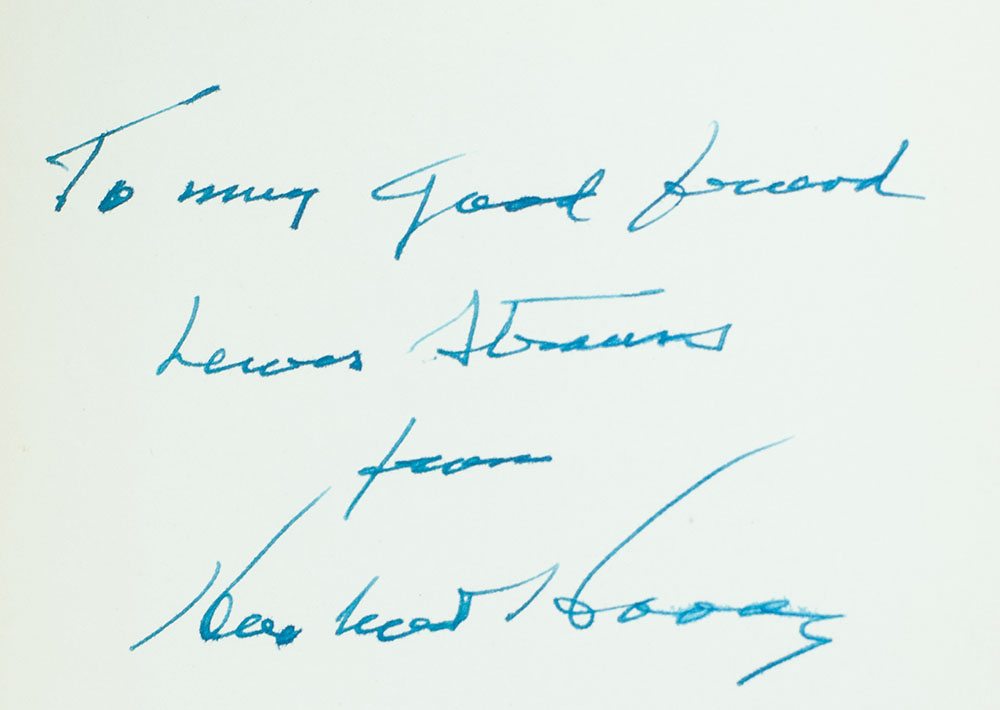 To my good friend
Lewis Strauss
from
Herbert Hoover